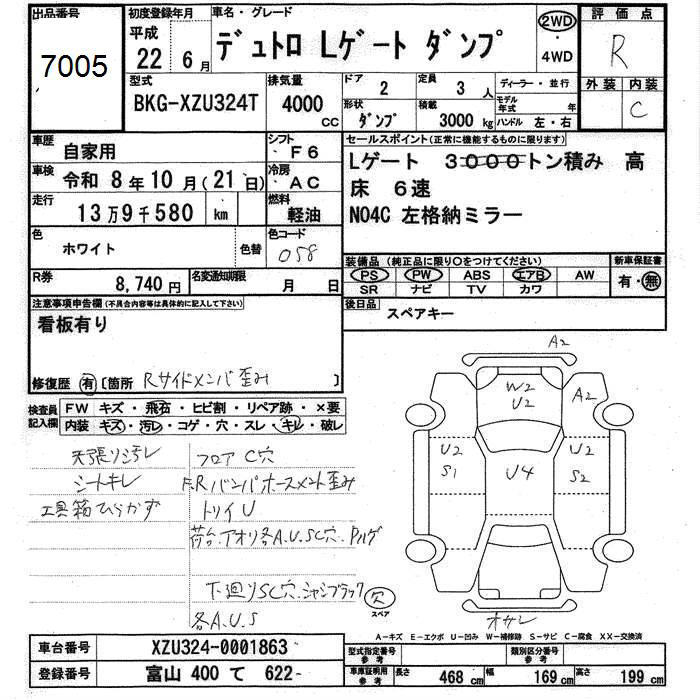 出品番号
7005
初度登録年月
平成
22 6月
車名・グレード
デュトロ Lゲート ダンプ
2WD
4WD
評価点
R
外装 内装
C
型式
BKG-XZU324T
排気量
4000 cc
ドア
2
定員
3 人
形状
ダンプ
積載
3000 kg
ディーラー・並行
モデル年式 年
ハンドル 左・右
車歴
自家用
シフト
F6
車検
令和 8年 10月(21日)
冷房
AC
走行
13万9千580 km
燃料
軽油
色
ホワイト
色替
色コード
058
R券
8,740円
名変通知期限
月 日
セールスポイント(正常に機能するものに限ります)
Lゲート 3000トン積み 高
床 6速
N04C 左格納ミラー
装備品(純正品に限り○をつけてください)
PS PW ABS エアB AW
SR ナビ TV カワ
新車保証書
有・無
後日品
スペアキー
注意事項申告欄(不具合内容等は具体的に記入して下さい)
看板有り
修復歴 有 [箇所 Rサイドメンバ歪み ]
検査員記入欄
FW キズ・飛石・ヒビ割・リペア跡・×要
内装 キズ・汚レ・コゲ・穴・スレ・キレ・破レ
天張り汚レ
シートキレ
工具箱ひらかず
フロア C穴
F.Rバンパホースメント歪み
トリイU
荷台.アオリ各A.U.SC穴.Pルゲ
下廻りSC穴.シャシブラック
各A.U.S
A2
W2
U2
A2
U2
S1
U4
U2
S2
欠
スペア
オサレ
A-キズ E-エクボ U-凹み W-補修跡 S-サビ C-腐食 XX-交換済
車台番号
XZU324-0001863
登録番号
富山 400 て 622-
型式指定番号
参考
類別区分番号
参考
車庫証明用
参考
長さ 468 cm 幅 169 cm 高さ 199 cm